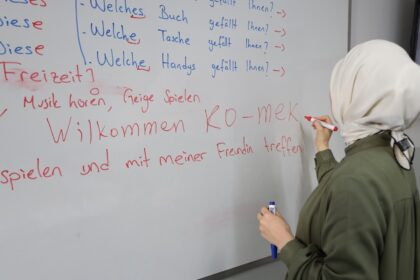 Welches Buch gefällt Ihnen? →
Diese · Welche Tasche gefällt Ihnen? →
Diese · Welche Handys gefällt Ihnen? →
Freizeit?
Musik hören, Geige Spielen
Willkommen KO-mek
spielen und mit meiner Freundin treffen